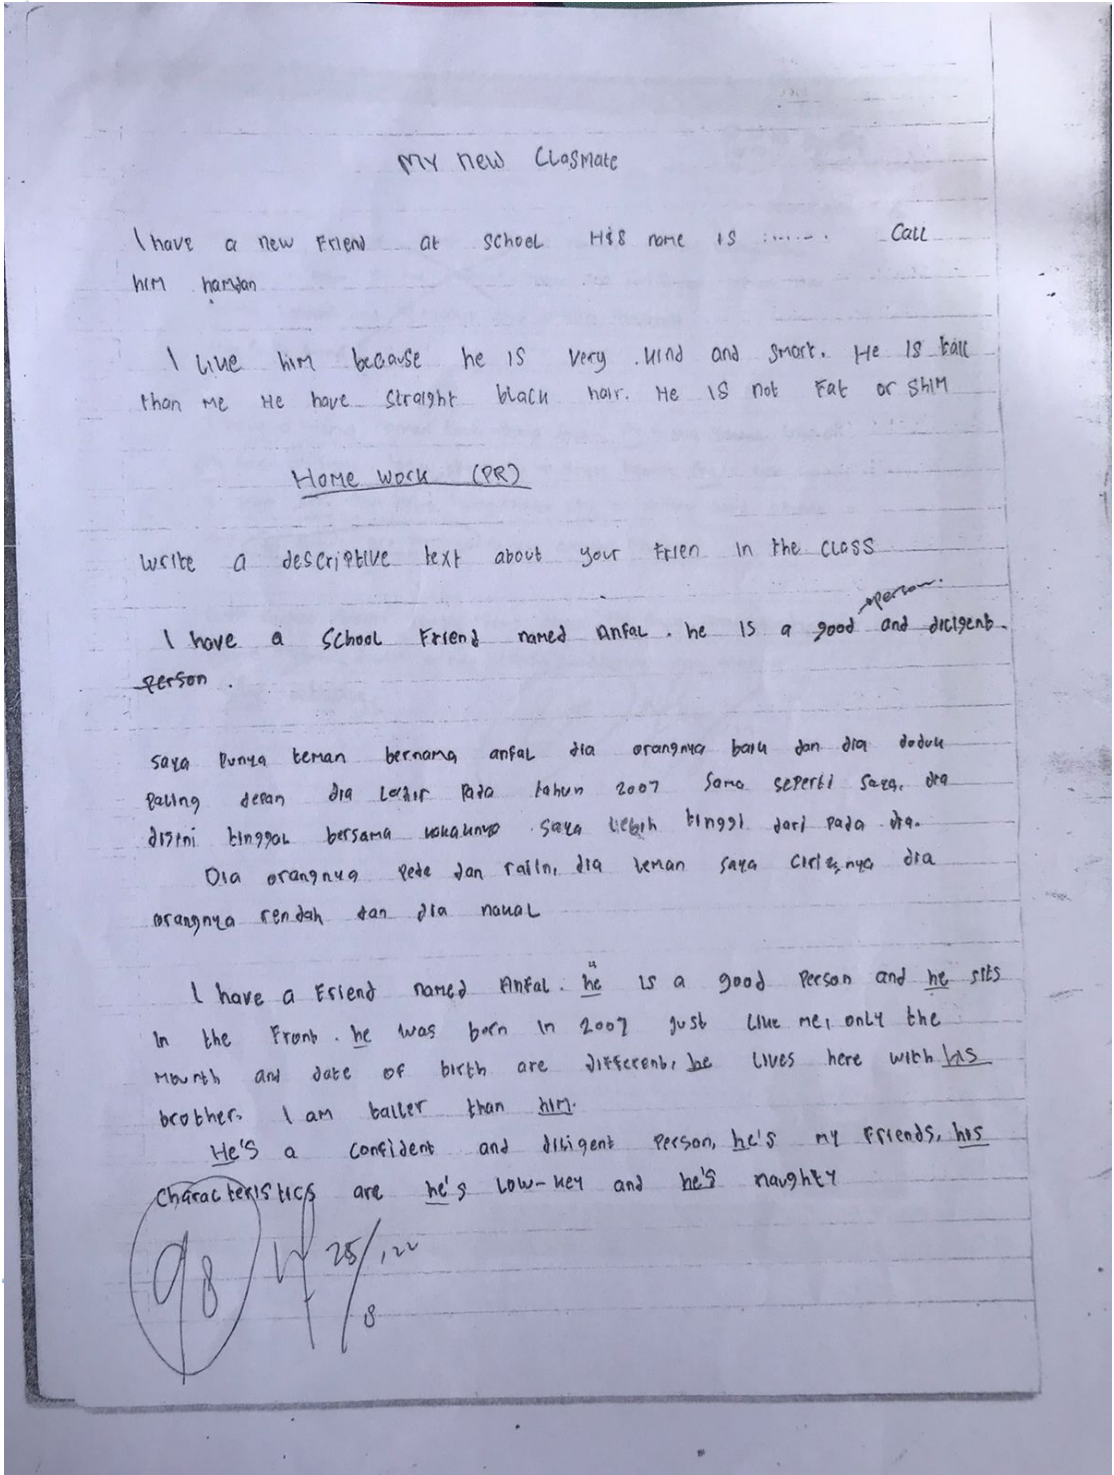 My new Clasmate
I have a new Friend at School His name is ....... Call
him hamdan
I like him because he is very kind and smart. He is tall
than me He have straight black hair. He is not Fat or Shim
Home work (PR)
Write a descriptive text about your Frien in the class
person.
I have a School Friend named Anfal. he is a good and diligent.
person.
saya punya teman bernama anfal dia orangnya baik dan dia duduk
paling depan dia lahir pada tahun 2007 sama seperti saya, dia
disini tinggal bersama kakaknya. saya lebih tinggi dari pada dia.
Dia orangnya pede dan rajin, dia teman saya cirisnya dia
orangnya rendah dan dia nakal
I have a Friend named Anfal. he is a good person and he sits
in the Front. he was born in 2007 just like me, only the
mounth and date of birth are different, he lives here with his
brother. I am taller than him.
He's a confident and diligent person, he's my Friends, his
characteristics are he's low-key and he's naughty
98 25/8 '22